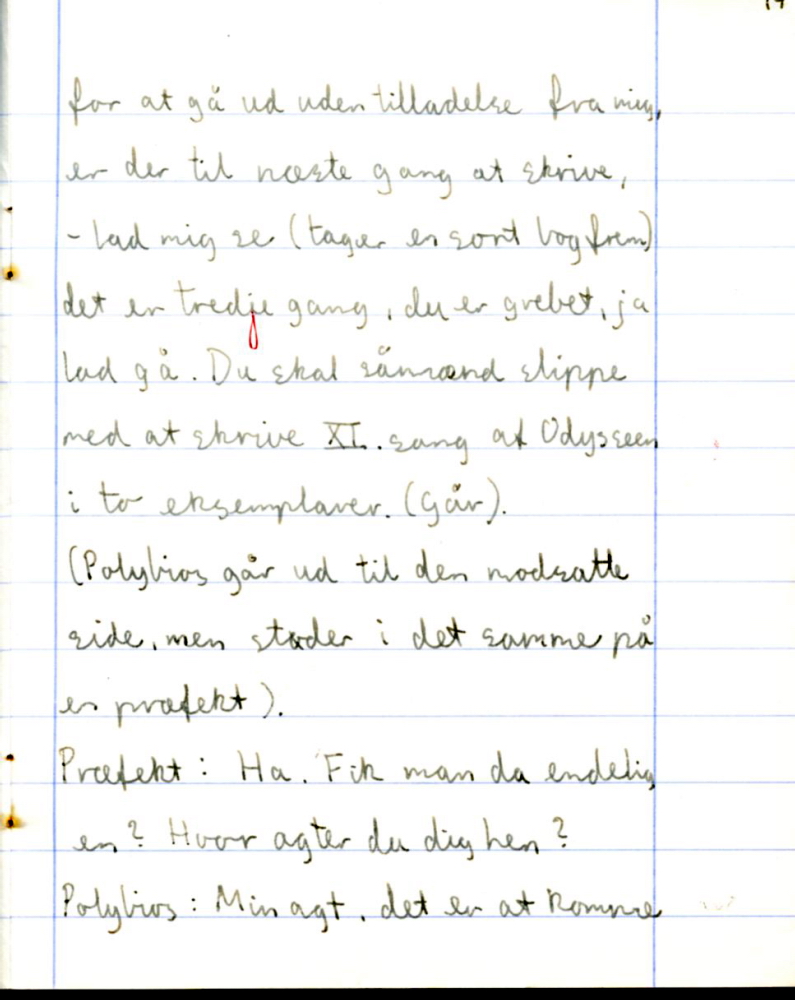 for at gå ud uden tilladelse fra mig,
er der til næste gang at skrive,
- lad mig se (tager en sort bog frem)
det er tredje gang, du er grebet, ja
lad gå. Du skal såmænd slippe
med at skrive XI. sang af Odysseen
i to eksemplarer. (Går).
(Polybios går ud til den modsatte
side, men støder i det samme på
en præfekt).
Præfekt: Ha. Fik man da endelig
en? Hvor agter du dig hen?
Polybios: Min agt, det er at komme